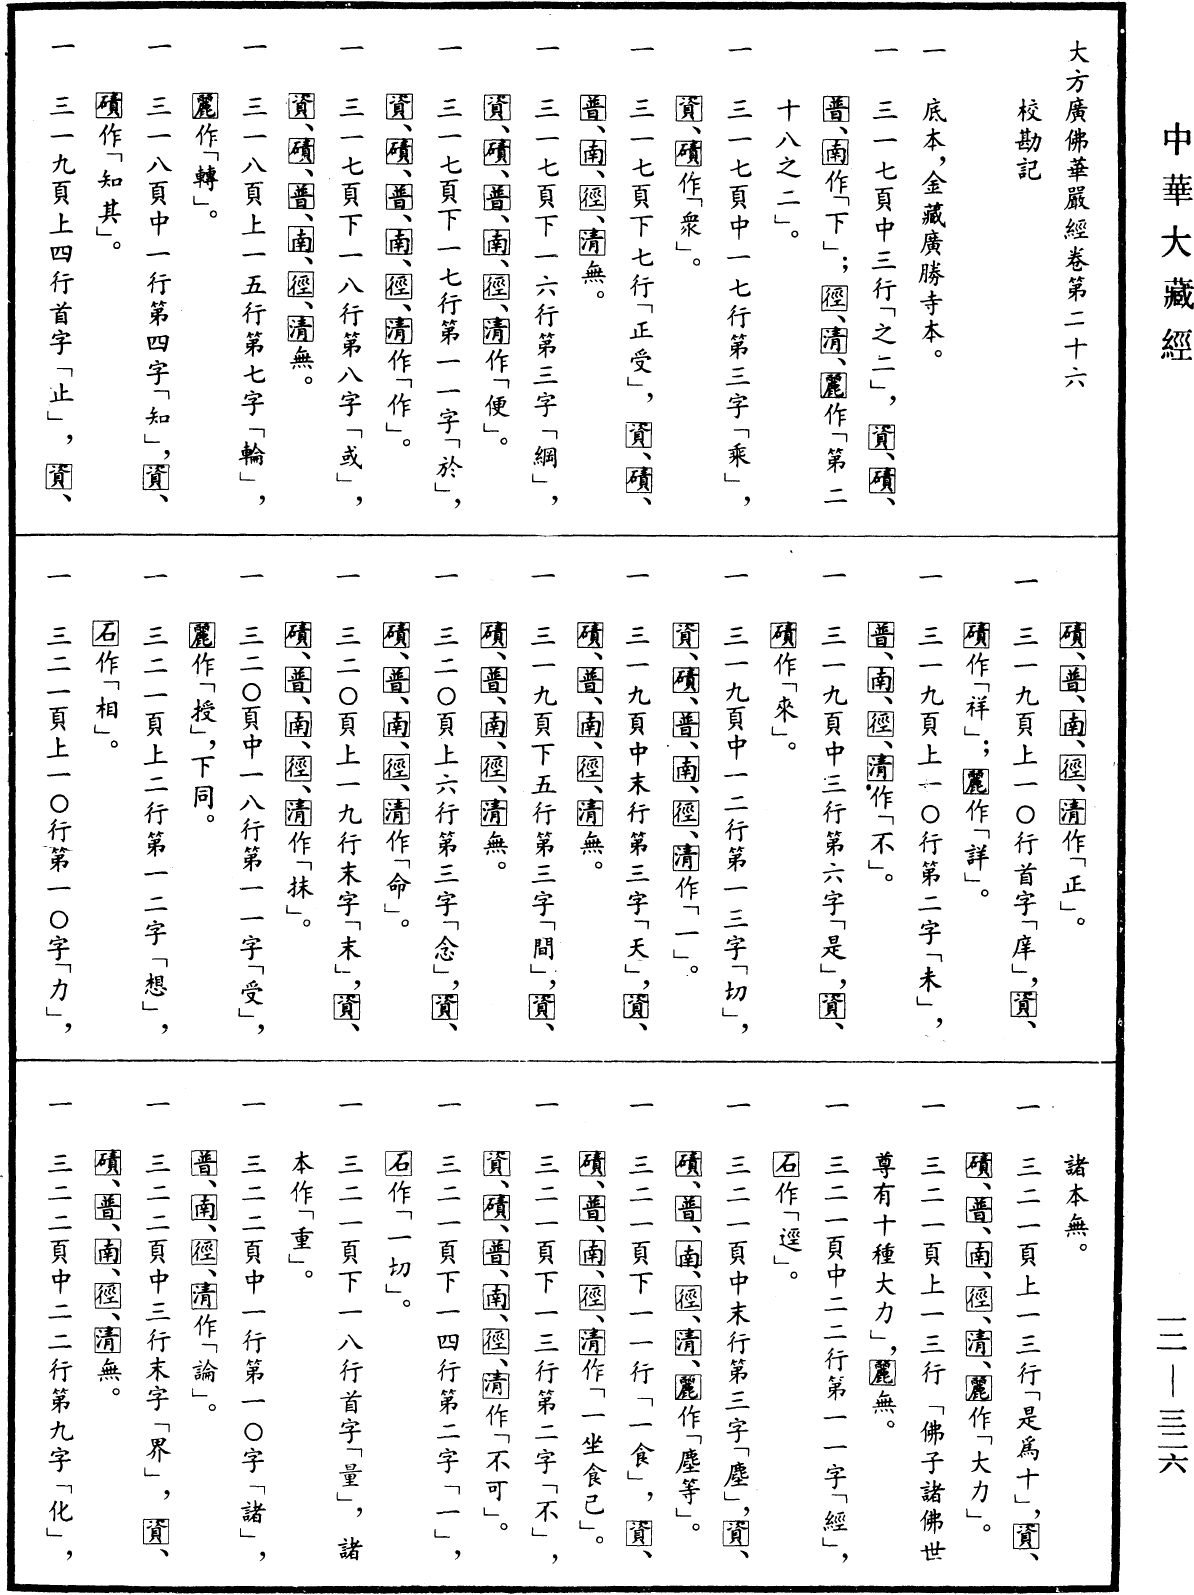 中華大藏經
大方廣佛華嚴經卷第二十六
校勘記
一　底本，金藏廣勝寺本。
一　三一七頁中三行「之二」，資、磧、
普、南作「下」；徑、清、麗作「第二
十八之二」。
一　三一七頁中一七行第三字「乘」，
資、磧作「衆」。
一　三一七頁下七行「正受」，資、磧、
普、南、徑、清無。
一　三一七頁下一六行第三字「綱」，
資、磧、普、南、徑、清作「便」。
一　三一七頁下一七行第一一字「於」，
資、磧、普、南、徑、清作「作」。
一　三一七頁下一八行第八字「或」，
資、磧、普、南、徑、清無。
一　三一八頁上一五行第七字「輪」，
麗作「轉」。
一　三一八頁中一行第四字「知」，資、
磧作「知其」。
一　三一九頁上四行首字「止」，資、
磧、普、南、徑、清作「正」。
一　三一九頁上一〇行首字「庠」，資、
磧作「祥」；麗作「詳」。
一　三一九頁上一〇行第二字「未」，
普、南、徑、清作「不」。
一　三一九頁中三行第六字「是」，資、
磧作「來」。
一　三一九頁中一二行第一三字「切」，
資、磧、普、南、徑、清作「一」。
一　三一九頁中末行第三字「天」，資、
磧、普、南、徑、清無。
一　三一九頁下五行第三字「間」，資、
磧、普、南、徑、清無。
一　三二〇頁上六行第三字「念」，資、
磧、普、南、徑、清作「命」。
一　三二〇頁上一九行末字「末」，資、
磧、普、南、徑、清作「抹」。
一　三二〇頁中一八行第一一字「受」，
麗作「授」，下同。
一　三二一頁上二行第一二字「想」，
石作「相」。
一　三二一頁上一〇行第一〇字「力」，
諸本無。
一　三二一頁上一三行「是爲十」，資、
磧、普、南、徑、清、麗作「大力」。
一　三二一頁上一三行「佛子諸佛世
尊有十種大力」，麗無。
一　三二一頁中二二行第一一字「經」，
石作「逕」。
一　三二一頁中末行第三字「塵」，資、
磧、普、南、徑、清、麗作「塵等」。
一　三二一頁下一一行「一食」，資、
磧、普、南、徑、清作「一坐食已」。
一　三二一頁下一三行第二字「不」，
資、磧、普、南、徑、清作「不可」。
一　三二一頁下一四行第二字「一」，
石作「一切」。
一　三二一頁下一八行首字「量」，諸
本作「重」。
一　三二二頁中一行第一〇字「諸」，
普、南、徑、清作「論」。
一　三二二頁中三行末字「界」，資、
磧、普、南、徑、清無。
一　三二二頁中二二行第九字「化」，
一二—三二六